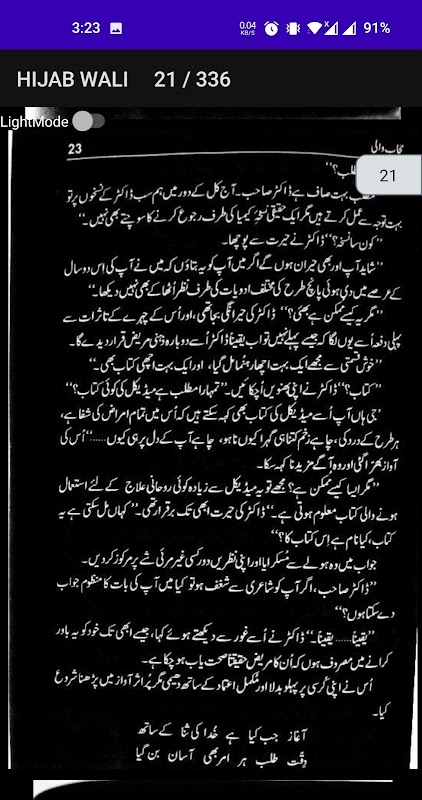 3:23
0.04
KB/S
91%
HIJAB WALI 21 / 336
LightMode
21
23 حجاب والی
طلب؟‘‘
مطلب بہت صاف ہے ڈاکٹر صاحب۔ آج کل کے دور میں ہم سب ڈاکٹر کے نسخوں پر تو
بہت توجہ سے عمل کرتے ہیں مگر ایک حقیقی نسخۂ کیمیا کی طرف رجوع کرنے کا سوچتے بھی نہیں۔‘‘
’’کون سا نسخہ؟‘‘ ڈاکٹر نے حیرت سے پوچھا۔
’’شاید آپ اور بھی حیران ہوں گے اگر میں آپ کو یہ بتاؤں کہ میں نے آپ کی اس دو سال
کے عرصے میں دی ہوئی پانچ طرح کی مختلف ادویات کی طرف نظر اُٹھا کے بھی نہیں دیکھا۔‘‘
’’مگر یہ کیسے ممکن ہے بھئی؟‘‘ ڈاکٹر کی حیرانگی بجا تھی، اور اُس کے چہرے کے تاثرات سے
پہلی دفعہ اُسے یوں لگا کہ جیسے پہلے نہیں تو اب یقیناً ڈاکٹر اُسے دوبارہ ذہنی مریض قرار دیدے گا۔
’’خوش قسمتی سے مجھے ایک بہت اچھا رہنما مل گیا، اور ایک بہت اچھی کتاب بھی۔‘‘
’’کتاب؟‘‘ ڈاکٹر نے اپنی بھنویں اُچکائیں۔ ’’تمہارا مطلب ہے میڈیکل کی کوئی کتاب؟‘‘
’جی ہاں آپ اُسے میڈیکل کی کتاب بھی کہہ سکتے ہیں کہ اُس میں تمام امراض کی شفا ہے،
ہر طرح کے درد کی، چاہے زخم کتنا ہی گہرا کیوں نا ہو، چاہے آپ کے دل پر ہی کیوں.....‘‘ اُس کی
آواز بھرّا گئی اور وہ آگے مزید نا کہہ سکا۔
’’مگر ایسا کیسے ممکن ہے؟ مجھے تو یہ میڈیکل سے زیادہ کوئی روحانی علاج کے لئے استعمال
ہونے والی کتاب معلوم ہوتی ہے۔‘‘ ڈاکٹر کی حیرت ابھی تک برقرار تھی۔ ’’کہاں مل سکتی ہے یہ
کتاب، کیا نام ہے اِس کتاب کا؟‘‘
جواب میں وہ ہولے سے مُسکرایا اور اپنی نظریں دور کسی غیر مرئی شے پر مرکوز کر دیں۔
’’ڈاکٹر صاحب، اگر آپ کو شاعری سے شغف ہو تو کیا میں آپ کی بات کا منظوم جواب
دے سکتا ہوں؟‘‘
’’یقیناً...... یقیناً۔‘‘ ڈاکٹر نے اُسے غور سے دیکھتے ہوئے کہا، جیسے ابھی تک خود کو یہ باور
کرانے میں مصروف ہوں کہ اُن کا مریض حقیقتاً صحت یاب ہو چکا ہے۔
اُس نے اپنی کُرسی پر پہلو بدلا اور مُکمل اعتماد کے ساتھ دھیمی مگر پُر اثر آواز میں پڑھنا شروع
کیا۔
آغاز جب کیا ہے خُدا کی ثنا کے ساتھ
وقتِ طلب ہر امر بھی آسان بن گیا